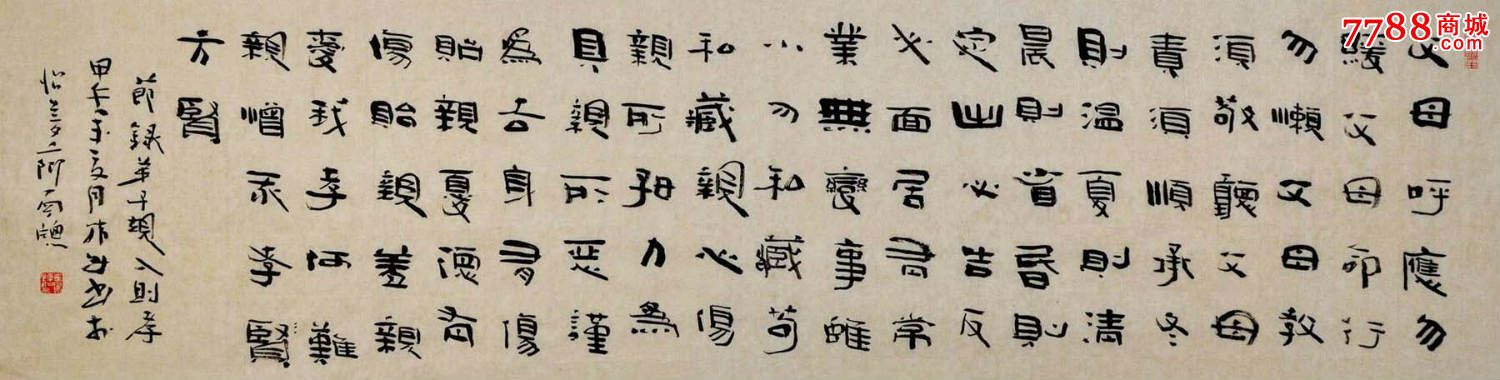 父母呼應勿
緩父母命行
勿懶父母教
須敬聽父母
責須順承冬
則温夏則清
晨則省昏則
定出必告反
必面居有常
業無變事雖
小勿私藏苟
私藏親心傷
親所好力為
具親所惡謹
為去身有傷
貽親憂德有
傷貽親羞親
愛我孝何難
親憎孝賢
方賢
節録弟子規入則孝
甲午年夏月書於
7788商城